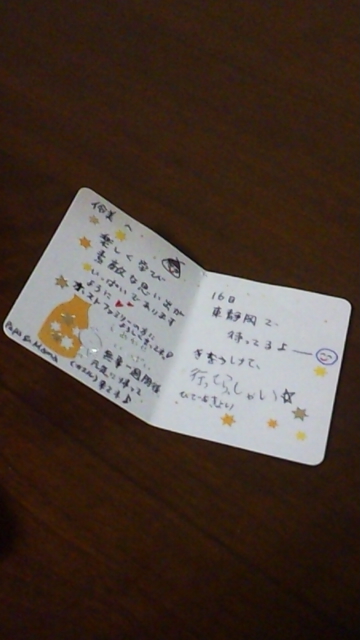 伶美へ
楽しく学び
素敵な思い出が
いっぱいであります
ように
ホストファミリーの方に
よろしくネ
無事一週間後
元気に帰って
来てネ♪
Papa & Mama
16日
東静岡で
待ってるよー
気をつけて、
行ってらっしゃい☆